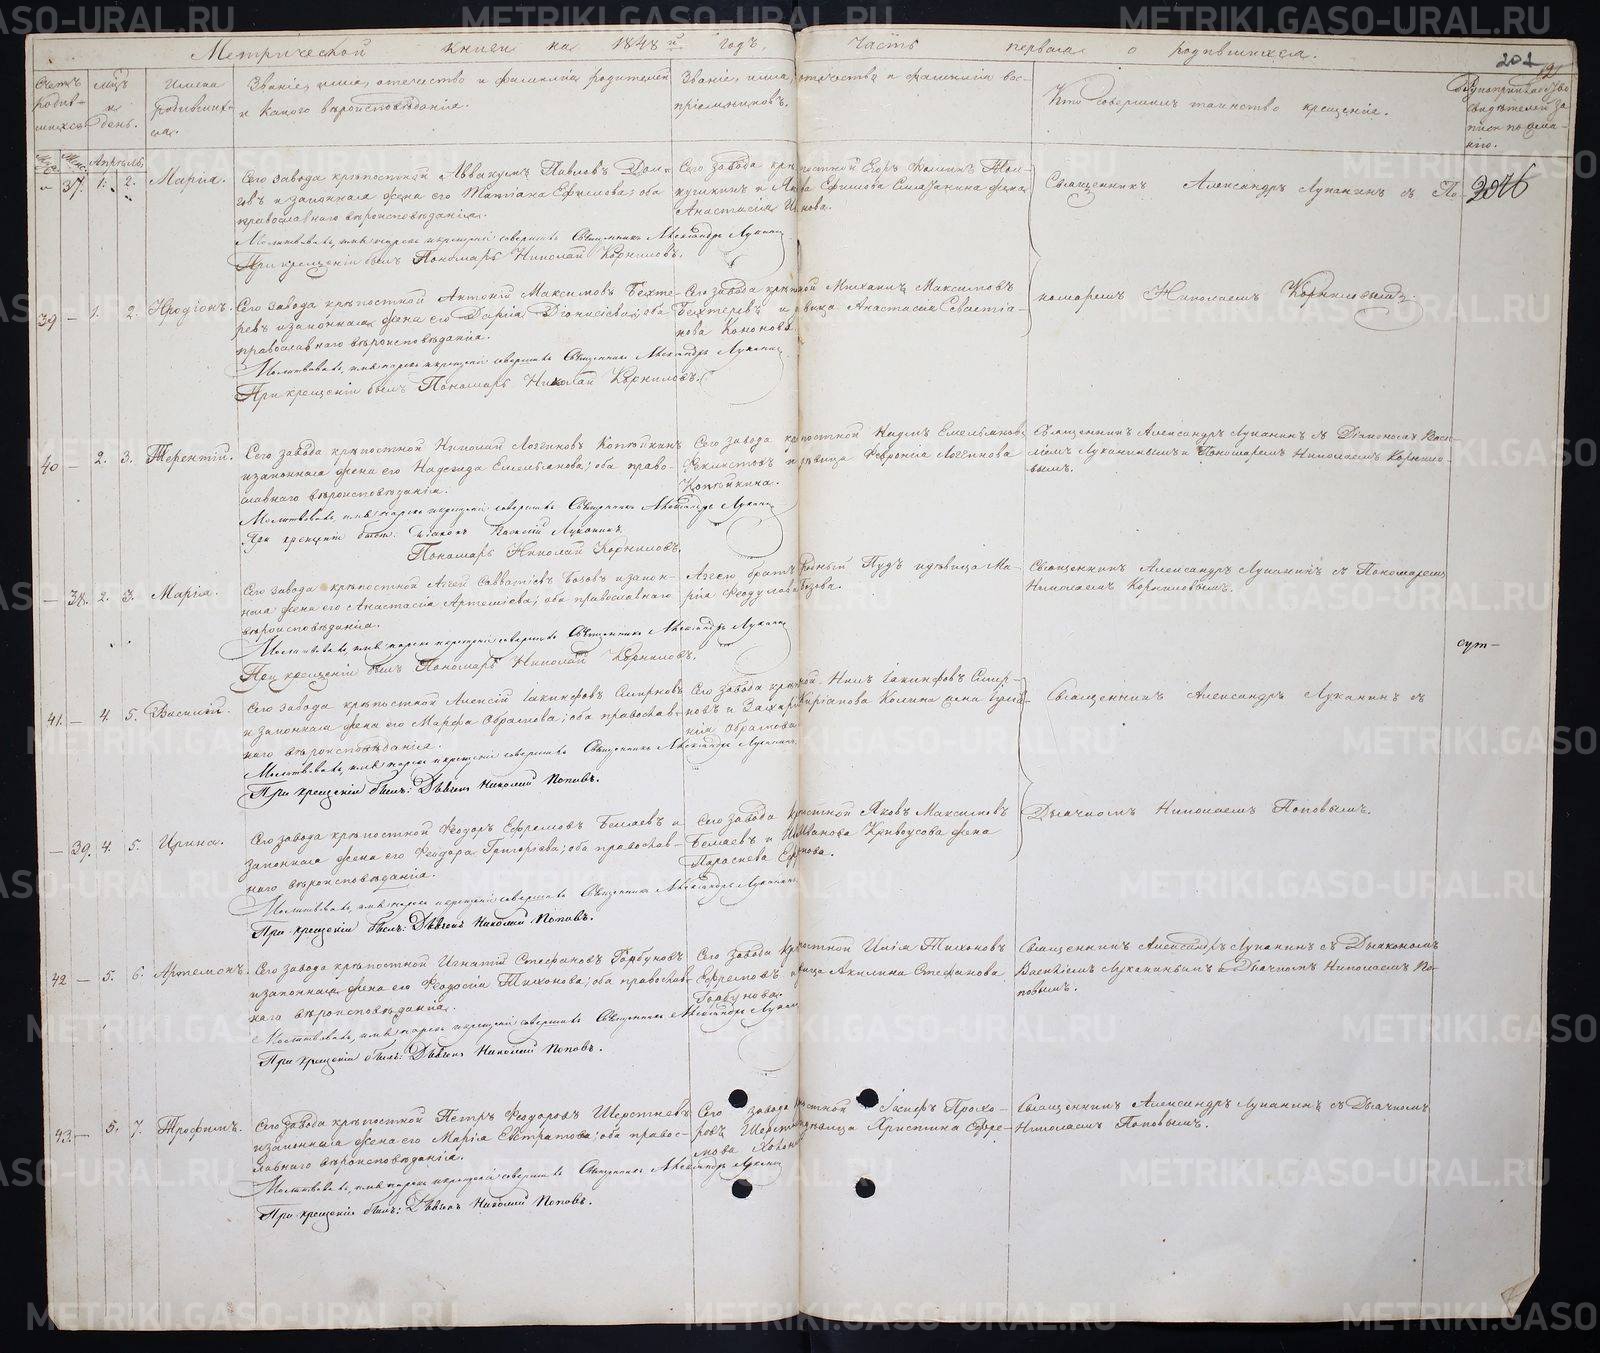 Метрической книги на 1848й годъ, Часть первая о родившихся.
201
Счетъ родив-
шихся.
мѣсяцъ и день.
Имена родивших-
ся.
Званіе, имя, отечество и фамилія родителей
и какого вѣроисповѣданія.
Званіе, имя, отечество и фамилія вос-
пріемниковъ.
Кто совершилъ таинство крещенія.
Апрѣль.
37. 1. 2. Марія.
Сего завода крѣпостной Аввакумъ Павловъ
и законная жена его Татіана Ефимова; оба
православнаго вѣроисповѣданія.
Молитвовалъ, имя нарекъ и крещеніе совершилъ Священникъ Александръ Луканинъ
При крещеніи былъ Пономарь Николай Корниловъ.
Сего завода крѣпостной Егоръ
Ефимова жена
Анастасія
Священникъ Александръ Луканинъ съ По-
39 — 1. 2. Иродіонъ.
Сего завода крѣпостной Антоній Максимовъ Бехте-
ревъ и законная жена его Дарія Діонисіева; оба
православнаго вѣроисповѣданія.
Молитвовалъ, имя нарекъ и крещеніе совершилъ Священникъ Александръ Луканинъ
При крещеніи былъ Пономарь Николай Корниловъ.
Сего завода крѣпостной Михаилъ Максимовъ
Бехтеревъ и дѣвица Анастасія Севастіа-
нова Кононова
номаремъ Николаемъ Корниловымъ.
40 — 2. 3. Терентій.
Сего завода крѣпостной Николай Логгиновъ Копѣйкинъ
и законная жена его Надежда Емельянова; оба право-
славнаго вѣроисповѣданія.
Молитвовалъ, имя нарекъ и крещеніе совершилъ Священникъ Александръ Луканинъ
При крещеніи былъ Діаконъ Василій Луканинъ
Пономарь Николай Корниловъ.
Сего завода крѣпостной Емельяновъ
Феклистовъ и дѣвица Февронія Логгинова
Копѣйкина.
Священникъ Александръ Луканинъ съ Діакономъ Васи-
ліемъ Луканинымъ и Пономаремъ Николаемъ Корнило-
вымъ.
— 38. 2. 3. Марія.
Сего завода крѣпостной Аггей Савватіевъ Бозовъ и закон-
ная жена его Анастасія Артеміева; оба православнаго
вѣроисповѣданія.
Молитвовалъ, имя нарекъ и крещеніе совершилъ Священникъ Александръ Луканинъ
При крещеніи былъ Пономарь Николай Корниловъ.
Аггею братъ родный Іудъ и дѣвица Ма-
рія Феодулова Бозова.
Священникъ Александръ Луканинъ съ Пономаремъ
Николаемъ Корниловымъ.
сут-
41. — 4. 5. Василій.
Сего завода крѣпостной Алексій Іакинфовъ Смирновъ
и законная жена его Марфа Абрамова; оба православ-
наго вѣроисповѣданія.
Молитвовалъ, имя нарекъ и крещеніе совершилъ Священникъ Александръ Луканинъ
При крещеніи былъ: Дьячекъ Николай Поповъ.
Сего завода крѣпостной Нилъ Іакинфовъ Смир-
новъ и
Абрамова
Священникъ Александръ Луканинъ съ
— 39. 4. 5. Ирина.
Сего завода крѣпостной Феодоръ Ефремовъ Беляевъ и
законная жена его Феодора Григоріева; оба православ-
наго вѣроисповѣданія.
Молитвовалъ, имя нарекъ и крещеніе совершилъ Священникъ Александръ Луканинъ
При крещеніи былъ: Дьячекъ Николай Поповъ.
Сего завода крѣпостной Яковъ Максимовъ
Беляевъ и Иванова Кривоусова жена
Парасковія
Дьячкомъ Николаемъ Поповымъ.
42 — 5. 6. Артемонъ.
Сего завода крѣпостной Игнатій Стефановъ Горбуновъ
и законная жена его Феодосія Тихонова; оба православ-
наго вѣроисповѣданія.
Молитвовалъ, имя нарекъ и крещеніе совершилъ Священникъ Александръ Луканинъ
При крещеніи былъ: Дьячекъ Николай Поповъ.
Сего завода крѣпостной Тихоновъ
Ефремовъ и дѣвица Акилина Стефанова
Горбунова.
Священникъ Александръ Луканинъ съ Діакономъ
Василіемъ Луканинымъ и Дьячкомъ Николаемъ По-
повымъ.
43 — 5. 7. Трофимъ.
Сего завода крѣпостной Петръ Феодоровъ Шерстневъ
и законная жена его Марія Евстратова; оба правос-
лавнаго вѣроисповѣданія.
Молитвовалъ, имя нарекъ и крещеніе совершилъ Священникъ Александръ Луканинъ
При крещеніи былъ: Дьячекъ Николай Поповъ.
Сего завода крѣпостной Іосифъ Прохо-
ровъ и дѣвица Христина Ефре-
мова
Священникъ Александръ Луканинъ съ Дьячкомъ
Николаемъ Поповымъ.
METRIKI.GASO-URAL.RU